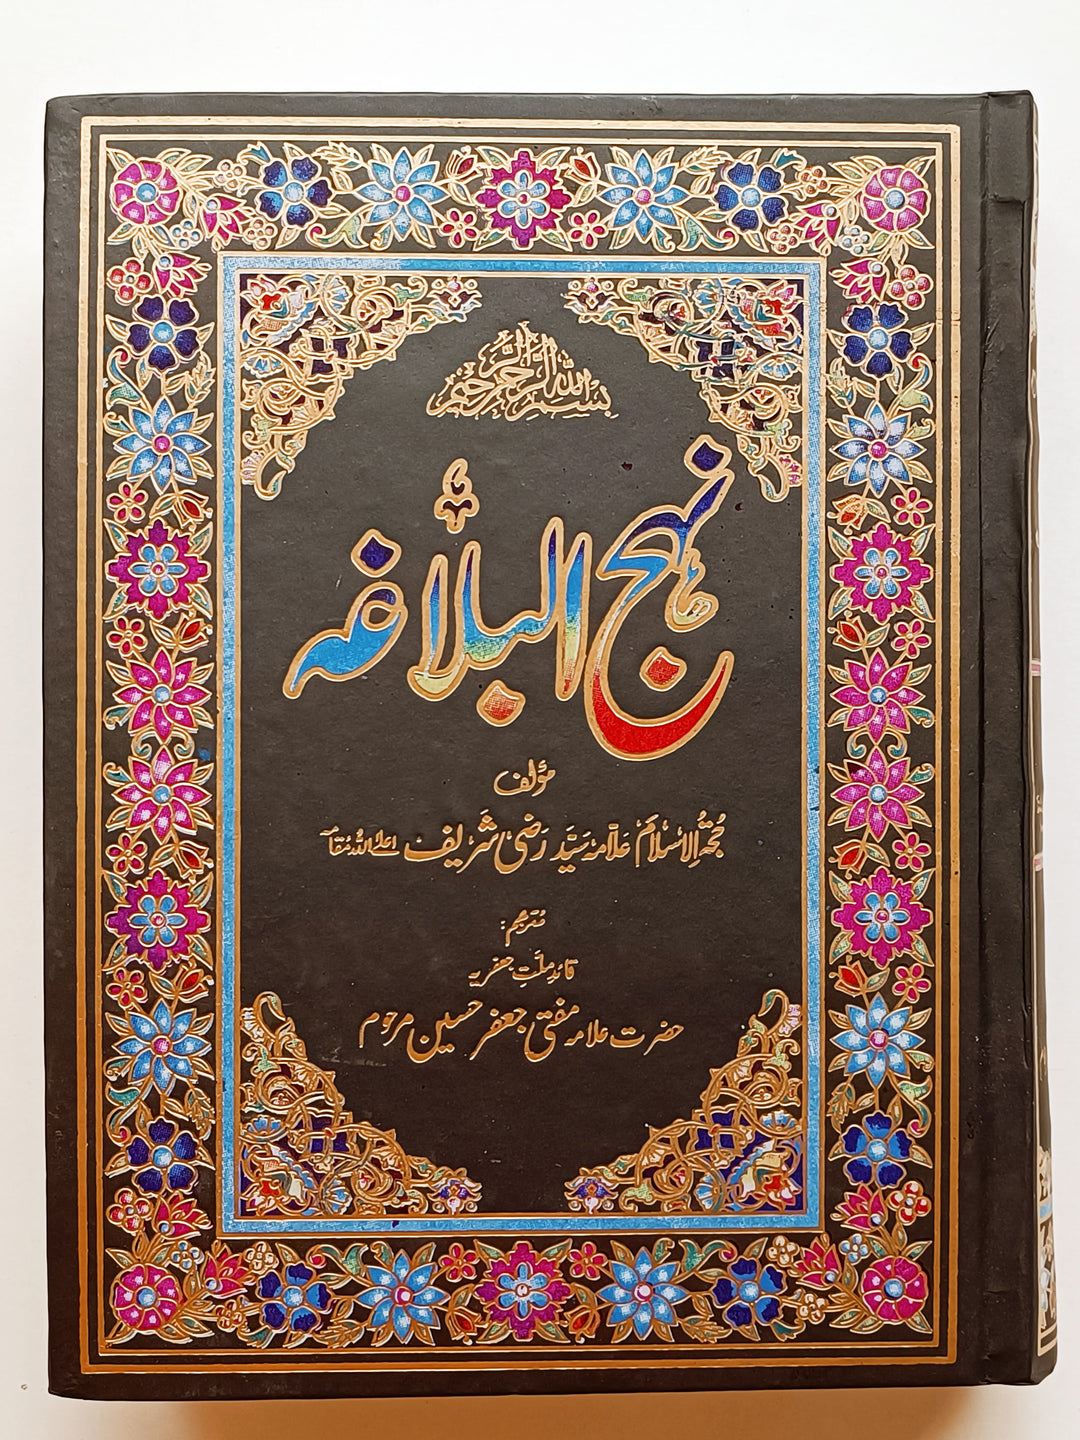 بسم الله الرحمن الرحيم
نہج البلاغہ
مؤلف
حجۃ الاسلام علامہ سید رضی شریف اعلی اللہ مقامہ
مترجم:
قائد ملت جعفریہ
حضرت علامہ مفتی جعفر حسین مرحوم